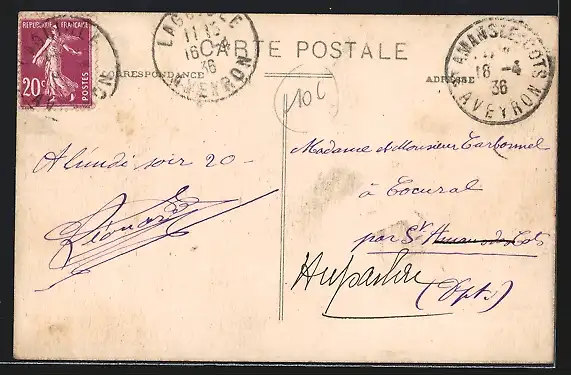 REPUBLIQUE FRANÇAISE
20c
POSTES
LAGUIOLE
16 -4
36
AVEYRON
CARTE POSTALE
CORRESPONDANCE
ADRESSE
ST AMANS-DES-COTS
18 -4
36
AVEYRON
10c
A lundi soir 20 -
Léonard
Madame et Monsieur Carbonnel
à Tocural
par St Amans des Cots
(Dpt)